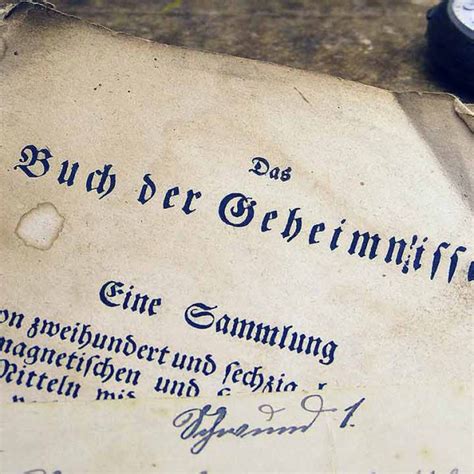 Das
Buch der Geheimnisse
Eine Sammlung
von zweihundert und sechzig
magnetischen und
Mitteln
Schwund 1.